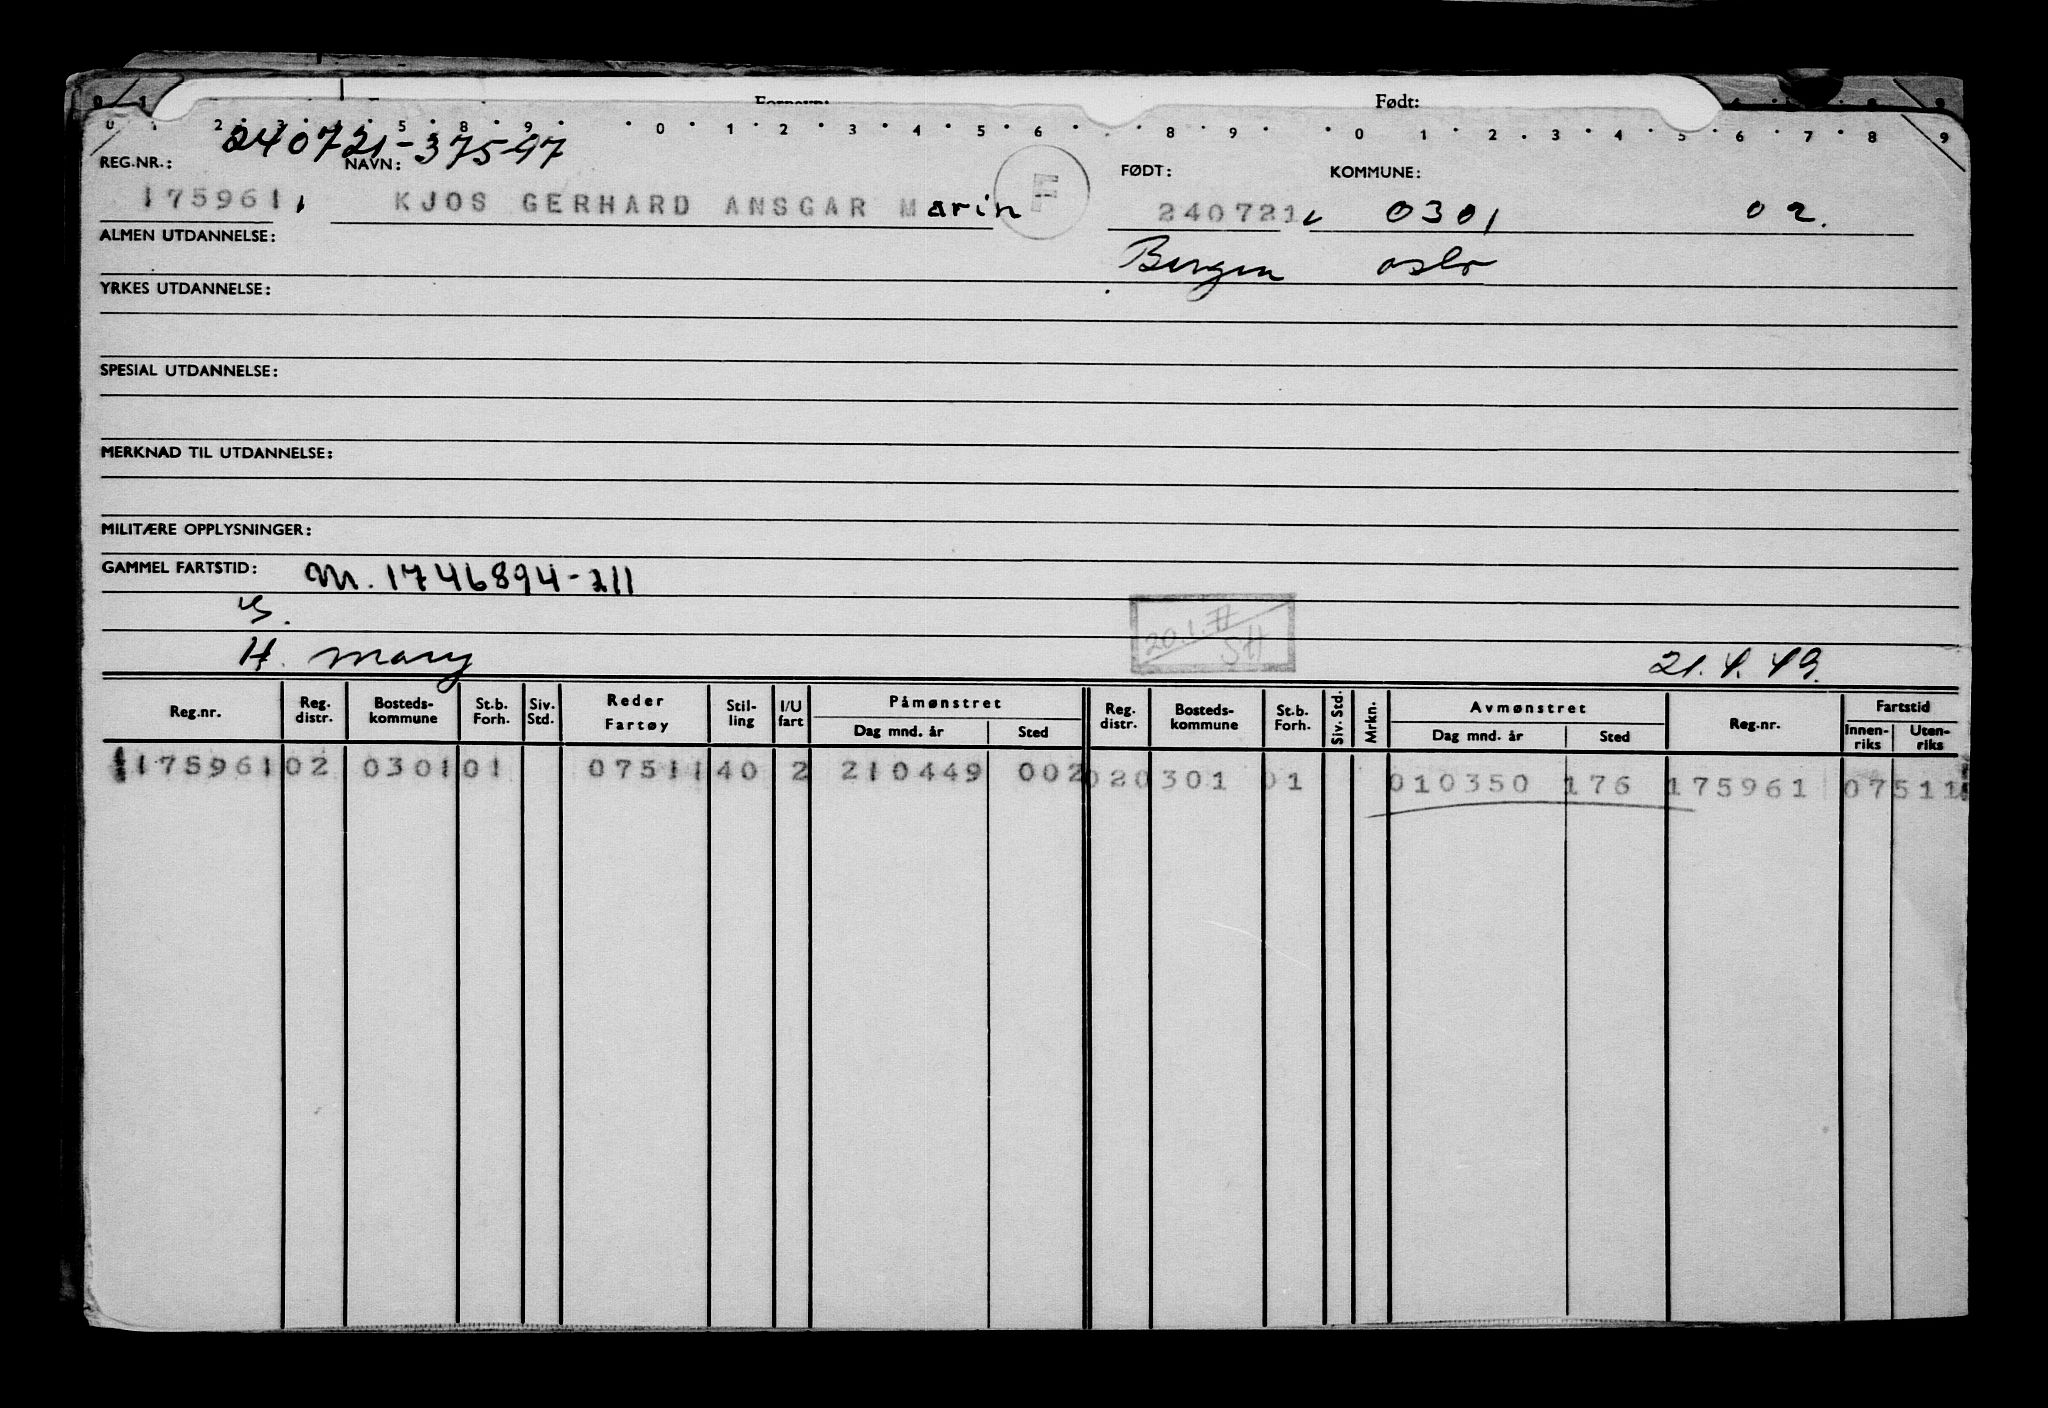 Født:
240721-37597
REG.NR.: NAVN: FØDT: KOMMUNE:
175961 KJOS GERHARD ANSGAR Marin E 240721 0301 02.
ALMEN UTDANNELSE: Bergen oslo
YRKES UTDANNELSE:
SPESIAL UTDANNELSE:
MERKNAD TIL UTDANNELSE:
MILITÆRE OPPLYSNINGER:
GAMMEL FARTSTID: M. 1746894-211
S.
20.1.77 SH
H. Mary 21.4.49.
Reg.nr. Reg. distr. Bosteds-kommune St.b. Forh. Siv. Std. Reder Fartøy Stil-ling I/U fart Påmønstret Dag mnd. år Sted Reg. distr. Bosteds-kommune St.b. Forh. Siv. Std. Mrkn. Avmønstret Dag mnd. år Sted Reg.nr. Fartstid Innen-riks Uten-riks
175961 02 0301 01 07511 40 2 210449 002 02 0301 01 010350 176 175961 07511